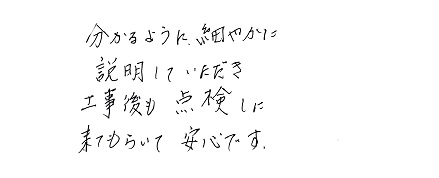 分かるように、細やかに
説明していただき
工事後も点検しに
来てもらいて安心です.